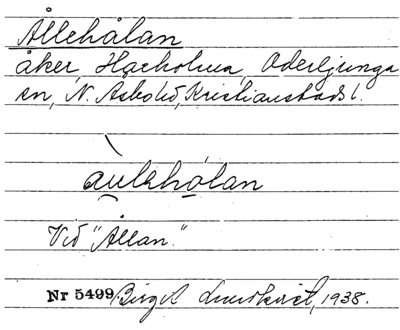 Ållehålan
åker, Harholma, Oderljunga
sn, N. Åsbohd, Kristianstads l.
aulehólan
Vid "Ållan."
Nr 5499 Birgit Lundkvist, 1938.